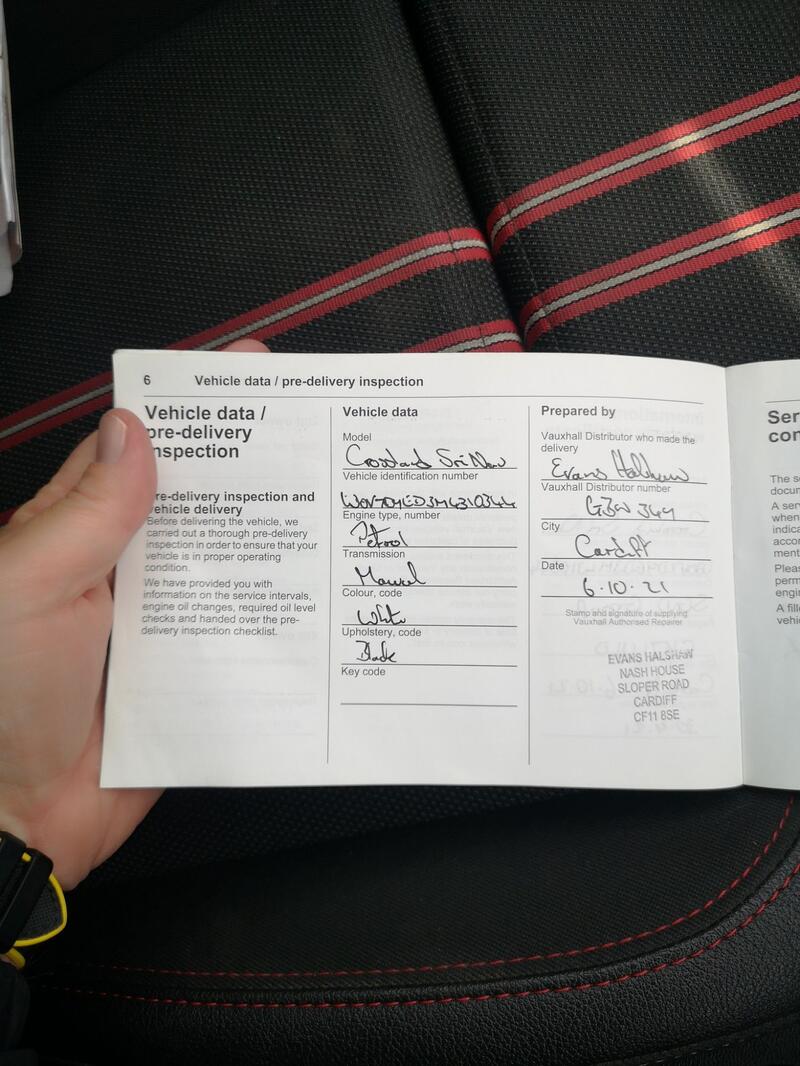 6 Vehicle data / pre-delivery inspection
Vehicle data /
pre-delivery
inspection
Pre-delivery inspection and
vehicle delivery
Before delivering the vehicle, we
carried out a thorough pre-delivery
inspection in order to ensure that your
vehicle is in proper operating
condition.
We have provided you with
information on the service intervals,
engine oil changes, required oil level
checks and handed over the pre-
delivery inspection checklist.
Vehicle data
Model
Crossland Sri Nav
Vehicle identification number
Engine type, number
Petrol
Transmission
Manual
Colour, code
White
Upholstery, code
Black
Key code
Prepared by
Vauxhall Distributor who made the
delivery
Evans Halshaw
Vauxhall Distributor number
GBW 349
City
Cardiff
Date
6.10.21
Stamp and signature of supplying
Vauxhall Authorised Repairer
EVANS HALSHAW
NASH HOUSE
SLOPER ROAD
CARDIFF
CF11 8SE
Ser
con
The s
docu
A ser
when
indica
accor
ment
Pleas
perm
engin
A fill
vehic